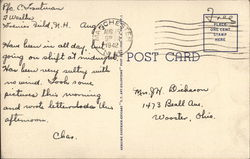 Pfc. C. Trautman
Grenier Field, N.H. Aug
Has been in all day, but
going on shift at midnight.
Has been very sultry with
no wind. Took some
pictures this morning
and wrote letters today this
afternoon.
Chas.
MANCHESTER
AUG
1942
Free
PLACE
ONE CENT
STAMP
HERE
POST CARD
Mrs. J H. Dickason
1473 Beall Ave.
Wooster, Ohio.